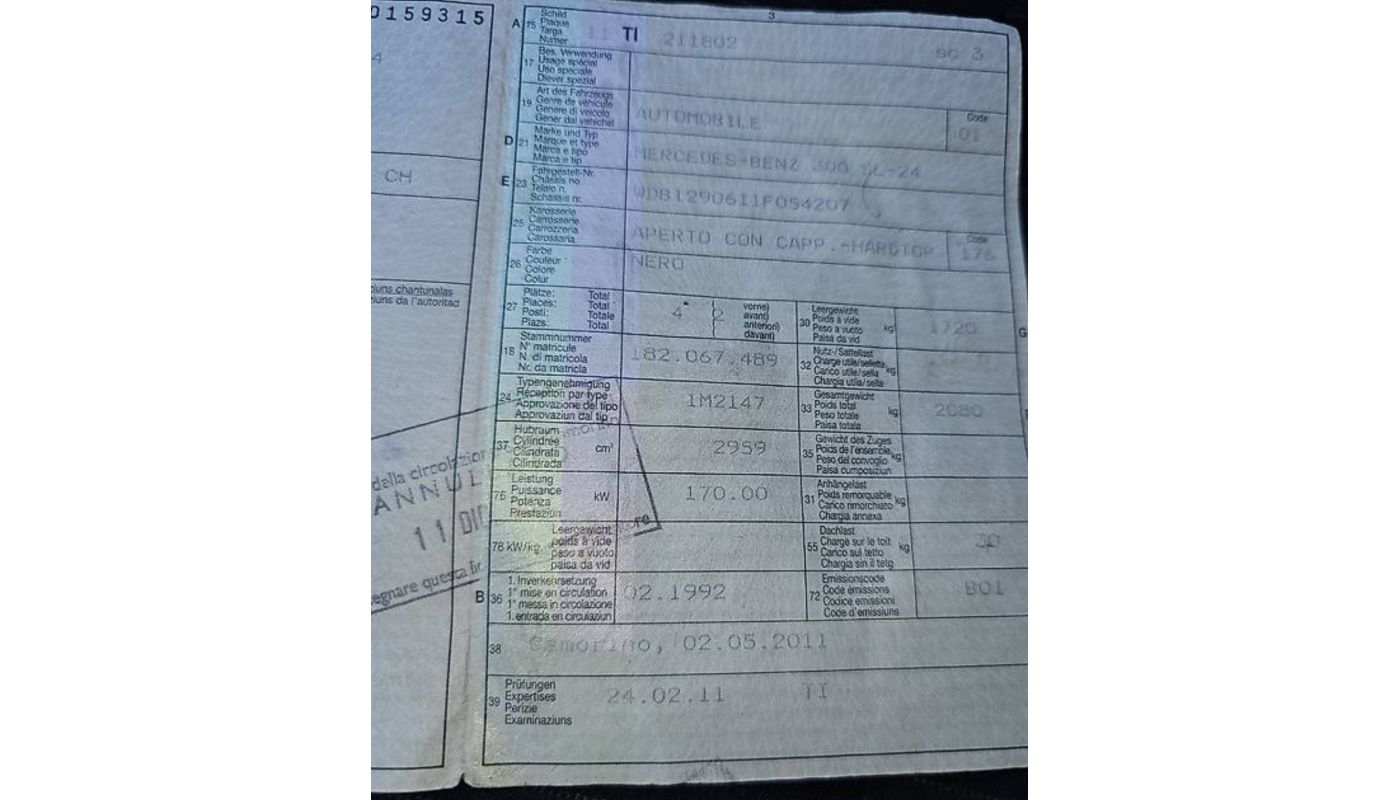 0159315
4
CH
ziuns chantunalas
ziuns da l'autoritad
della circolazion
ANNUL
11 DIC
egnare questa li
ore
3
A 15 Schild
Plaque
Targa
Numer
TI 211802
SC 3
17 Bes. Verwendung
Usage spécial
Uso speciale
Diever spezial
19 Art des Fahrzeugs
Genre de véhicule
Genere di veicolo
Gener dal vehichel
AUTOMOBILE
Code
01
D 21 Marke und Typ
Marque et type
Marca e tipo
Marca e tip
MERCEDES-BENZ 300 SL-24
E 23 Fahrgestell-Nr.
Châssis no
Telaio n.
Schassis nr.
WDB1290611F054207
25 Karosserie
Carrosserie
Carrozzeria
Carossaria
APERTO CON CAPP.-HARDTOP
Code
175
26 Farbe
Couleur
Colore
Colur
NERO
27 Plätze: Total
Places: Total
Posti: Totale
Plazs: Total
4
2
vorne)
avant)
anteriori)
davant)
30 Leergewicht
Poids à vide
Peso a vuoto
Paisa da vid
kg
1720
G
18 Stammnummer
N° matricule
N. di matricola
Nr. da matricla
182.067.489
32 Nutz-/Sattellast
Charge utile/sellette
Carico utile/sella
Chargia utila/sella
kg
24 Typengenehmigung
Réception par type
Approvazione del tipo
Approvaziun dal tip
1M2147
33 Gesamtgewicht
Poids total
Peso totale
Paisa totala
kg
2080
37 Hubraum
Cylindrée
Cilindrata
Cilindrada
cm³
2959
35 Gewicht des Zuges
Poids de l'ensemble
Peso del convoglio
Paisa cumposiziun
kg
76 Leistung
Puissance
Potenza
Prestaziun
kW
170.00
31 Anhängelast
Poids remorquable
Carico rimorchiato
Chargia annexa
kg
78 kW/kg
Leergewicht
poids à vide
peso a vuoto
paisa da vid
55 Dachlast
Charge sur le toit
Carico sul tetto
Chargia sin il tetg
kg
B 36 1. Inverkehrsetzung
1ᵉ mise en circulation
1ᵃ messa in circolazione
1. entrada en circulaziun
02.1992
72 Emissionscode
Code émissions
Codice emissioni
Code d'emissiuns
B01
38 Camorino, 02.05.2011
39 Prüfungen
Expertises
Perizie
Examinaziuns
24.02.11 TI